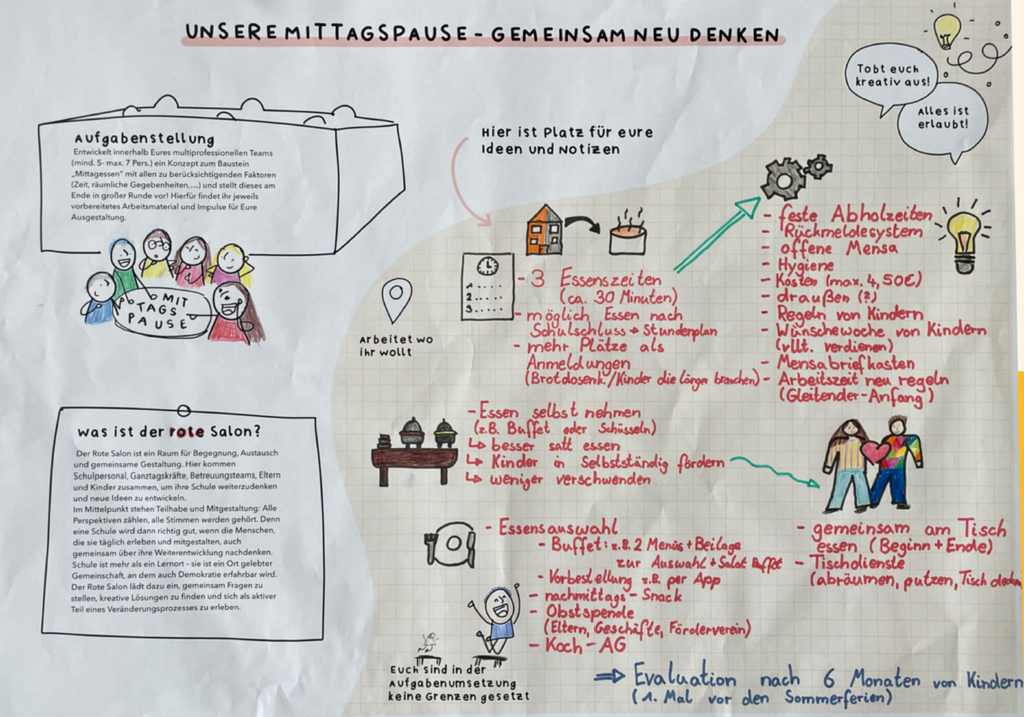 UNSERE MITTAGSPAUSE - GEMEINSAM NEU DENKEN
Tobt euch
kreativ aus!
Alles ist
erlaubt!
Aufgabenstellung
Entwickelt innerhalb Eures multiprofessionellen Teams
(mind. 5- max. 7 Pers.) ein Konzept zum Baustein
„Mittagessen" mit allen zu berücksichtigenden Faktoren
(Zeit, räumliche Gegebenheiten,...) und stellt dieses am
Ende in großer Runde vor! Hierfür findet ihr jeweils
vorbereitetes Arbeitsmaterial und Impulse für Eure
Ausgestaltung.
MIT
TAGS
PAUSE
Hier ist Platz für eure
Ideen und Notizen
Arbeitet wo
ihr wollt
1.
2.
3.
- 3 Essenszeiten
(ca. 30 Minuten)
- möglich Essen nach
Schulschluss + Stundenplan
- mehr Plätze als
Anmeldungen
(Brotdosenk./Kinder die länger brauchen)
- feste Abholzeiten
- Rückmeldesystem
- offene Mensa
- Hygiene
- Kosten (max. 4,50€)
- draußen (?)
- Regeln von Kindern
- Wünschewoche von Kindern
(vllt. verdienen)
- Mensabriefkasten
- Arbeitszeit neu regeln
(Gleitender-Anfang)
- Essen selbst nehmen
(z.B. Buffet oder Schüsseln)
↳ besser satt essen
↳ Kinder in Selbstständig fördern
↳ weniger verschwenden
- gemeinsam am Tisch
essen (Beginn + Ende)
- Tischdienste
(abräumen, putzen, Tisch decken
- Essensauswahl
- Buffet: z.B. 2 Menüs + Beilage
zur Auswahl + Salat Buffet
- Vorbestellung z.B. per App
- nachmittags - Snack
- Obstspende
(Eltern, Geschäfte, Förderverein)
- Koch - AG
⇒ Evaluation nach 6 Monaten von Kindern
(1. Mal vor den Sommerferien)
was ist der rote Salon?
Der Rote Salon ist ein Raum für Begegnung, Austausch
und gemeinsame Gestaltung. Hier kommen
Schulpersonal, Ganztagskräfte, Betreuungsteams, Eltern
und Kinder zusammen, um ihre Schule weiterzudenken
und neue Ideen zu entwickeln.
Im Mittelpunkt stehen Teilhabe und Mitgestaltung: Alle
Perspektiven zählen, alle Stimmen werden gehört. Denn
eine Schule wird dann richtig gut, wenn die Menschen,
die sie täglich erleben und mitgestalten, auch
gemeinsam über ihre Weiterentwicklung nachdenken.
Schule ist mehr als ein Lernort - sie ist ein Ort gelebter
Gemeinschaft, an dem auch Demokratie erfahrbar wird.
Der Rote Salon lädt dazu ein, gemeinsam Fragen zu
stellen, kreative Lösungen zu finden und sich als aktiver
Teil eines Veränderungsprozesses zu erleben.
Euch sind in der
Aufgabenumsetzung
keine Grenzen gesetzt